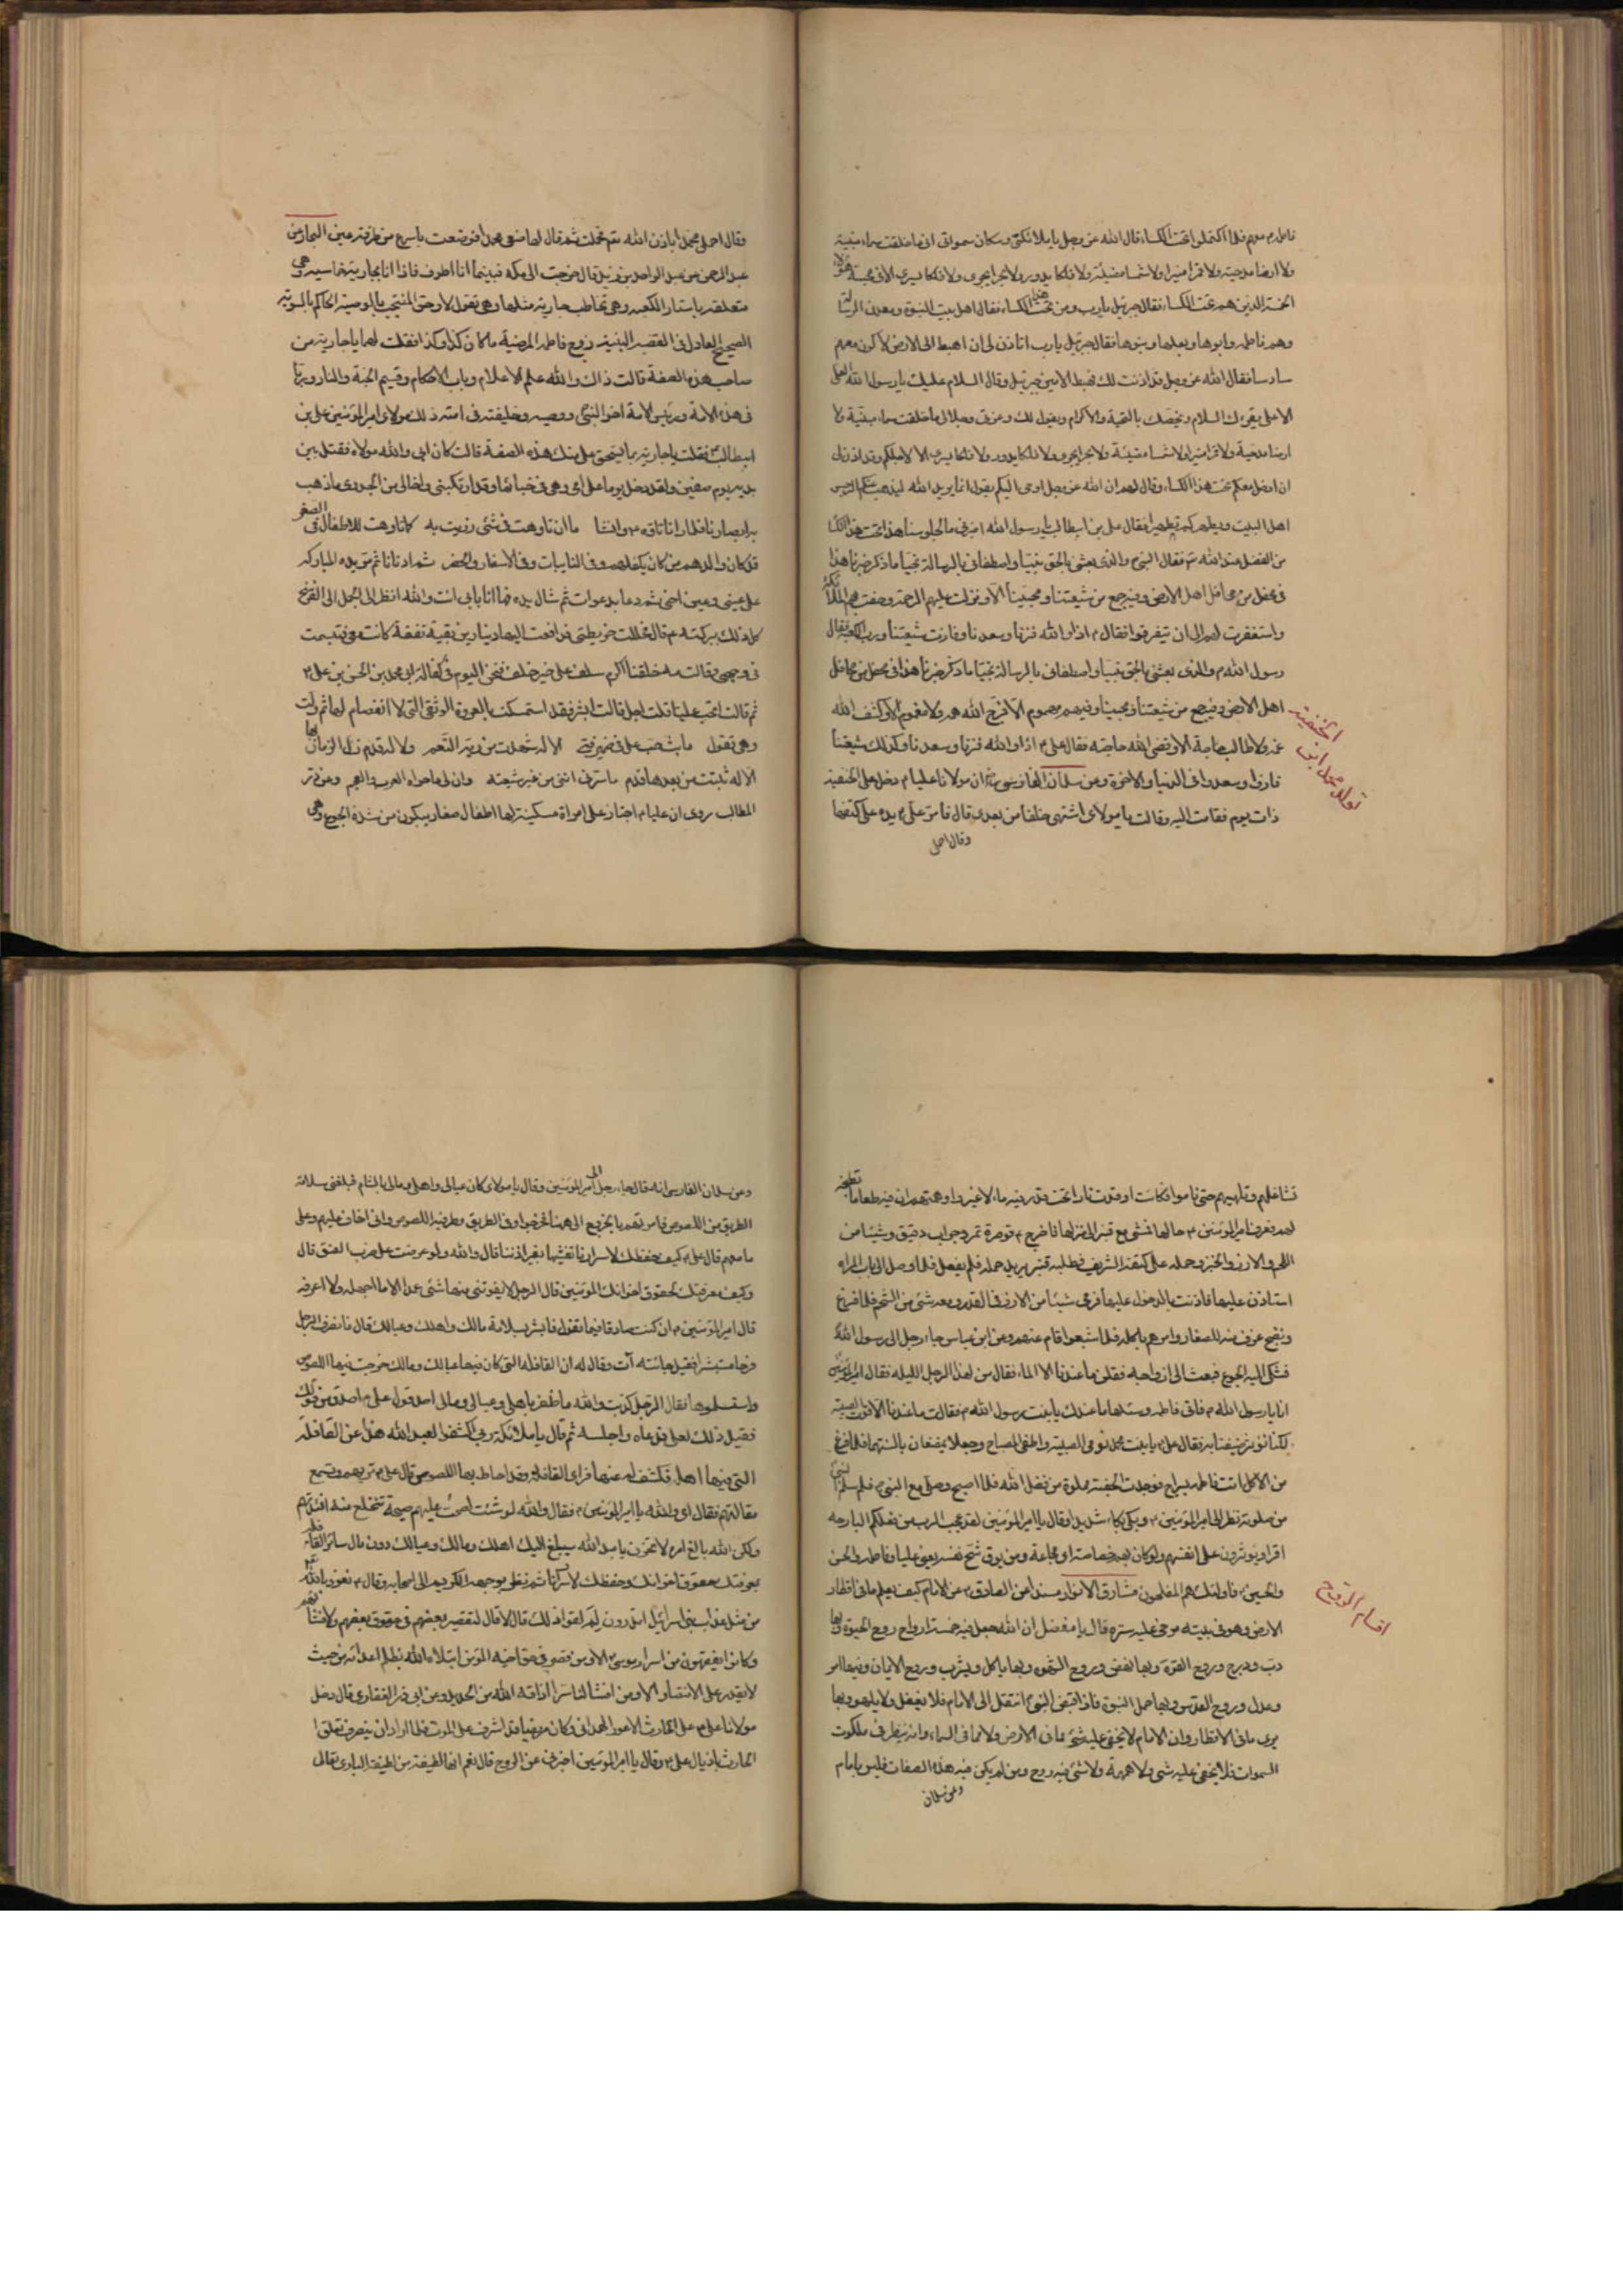 فاطمه م معهم فلما اكتملوا تحت الكساء قال الله عز وجل يا ملائكتي وسكان سمواتي اني ما خلقت سماء مبنية
ولا ارضا مدحية ولا قمرا منيرا ولا شمسا مضيئة ولا فلكا يدور ولا بحرا يجري ولا فلكا يسري الا في محبة هؤلاء
الخمسة الذين هم تحت الكساء فقال جبرئيل يا رب ومن تحت الكساء فقال اهل بيت النبوة ومعدن الرسالة
وهم فاطمه وابوها وبعلها وبنوها فقال جبرئيل يا رب اتاذن لي ان اهبط الى الارض لاكون معهم
سادسا فقال الله عز وجل قد اذنت لك فهبط الامين جبرئيل وقال السلام عليك يا رسول الله العلي
الاعلى يقرءك السلام ويخصك بالتحية والاكرام ويقول لك وعزتي وجلالي ما خلقت سماء مبنية ولا
ارضا مدحية ولا قمرا منيرا ولا شمسا مضيئة ولا بحرا يجري ولا فلكا يدور ولا فلكا يسري الا لاجلكم وقد اذن لي
ان ادخل معكم تحت هذا الكساء وقال لهم ان الله عز وجل اوحى اليكم يقول انما يريد الله ليذهب عنكم الرجس
اهل البيت ويطهركم تطهيرا فقال علي بن ابيطالب يا رسول الله اخبرني ما لجلوسنا هذا تحت هذا الكساء
من الفضل عند الله تع فقال النبي والذي بعثني بالحق نبيا واصطفاني بالرسالة نجيا ما ذكر خبرنا هذا
في محفل من محافل اهل الارض وفيه جمع من شيعتنا ومحبينا الا ونزلت عليهم الرحمة وحفت بهم الملائكة
واستغفرت لهم الى ان يتفرقوا فقال م اذا والله فزنا وسعدنا وفازت شيعتنا ورب الكعبة فقال
رسول الله م والذي بعثني بالحق نبيا واصطفاني بالرسالة نجيا ما ذكر خبرنا هذا في محفل من محافل
اهل الارض وفيه جمع من شيعتنا ومحبينا وفيهم مهموم الا فرج الله همه ولا مغموم الا وكشف الله
غمه ولا طالب حاجة الا وقضى الله حاجته فقال علي م اذا والله فزنا وسعدنا وكذلك شيعتنا
فازوا وسعدوا في الدنيا والاخرة وعن سلمان الفارسي ان مولانا عليا م دخل على الحنفية
ذات يوم فقامت اليه وقالت يا مولاي اشتهي خلفا من بعدي قال فامر علي م يده على كتفها
وقال احملي
تولد محمد ابن الحنفية
وقال احملي محمدا باذن الله تع فحملت ثم قال لها ضعي محمدا فوضعت باسرع من طرفة عين البحار عن
عبد الرحمن بن عبد الواحد بن زيد قال خرجت الى مكة فبينما انا اطوف فاذا انا بجارية خماسيه وهي
متعلقه باستار الكعبه وهي تخاطب جارية مثلها وهي تقول لا وحق المنتجب بالوصية الحاكم بالسوية
الصحيح العادل في القضيه زوج فاطمه المرضية ما كان كذا وكذا فقلت لها يا جارية من
صاحب هذه الصفة قالت ذلك والله علم الاعلام وباب الاحكام وقسيم الجنة والنار ورباني
هذه الامة ورئيس الامة اخو النبي ووصيه وخليفته في امته ذلك مولاي امير المؤمنين علي بن
ابيطالب فقلت يا جارية بما يستحق علي منك هذه الصفة قالت كان ابي والله مولاه فقتل بين
يديه يوم صفين ولقد دخل يوما على امي وهي في خبائها وقد اركبني واخا لي من الجدري ما ذهب
به ابصارنا فلما رانا تاوه وانشا ما ان تاوهت في شئ رزيت به كما تاوهت للاطفال في الصغر
قد كان والدهم من كان يكفلهم في النايبات وفي الاسفار والحضر ثم ادنانا ثم مر يده المباركه
على عيني وعين اخي ثم دعا بدعوات ثم شال يده فها انا بابي انت والله انظر الى الجمل الى الفرسخ
كل ذلك ببركته م قال فحللت خريطتي فدافعت اليها دينارين بقية نفقة كانت معي فتبسمت
في وجهي وقالت مه خلفنا اكرم سلف على خير خلف فنحن اليوم في كفالة ابي محمد بن الحسن بن علي م
ثم قالت اتحب عليا قلت اجل قالت ابشر فقد استمسكت بالعروة الوثقى التي لا انفصام لها ثم ولت
وهي تقول ما بث حب علي في ضمير فتى الا له شهدت من ربه النعم ولا له قدم زل الزمان بها
الا له ثبتت من بعدها قدم ما سرني انني من غير شيعته وان لي ما حواه العرب والعجم وعن در
المطالب روى ان عليا م اجتاز على امراة مسكينة لها اطفال صغار يبكون من شدة الجوع وهي
تشاغلهم وتلهيهم حتى ناموا فكانت اوقدت نارا تحت قدر فيه ماء لا غير واوهمتهم ان فيه طعاما تطبخه
لهم فعرف امير المؤمنين م حالها فمشى مع قنبر الى منزله فاخرج م قوصرة تمر وجراب دقيق وشيئا من
اللحم والارز والخبز وحمله على كتفه الشريف فطلب قنبر يريد حمله فلم يفعل فلما وصل الى باب المراه
استاذن عليها فاذنت بالدخول عليها فرمى شيئا من الارز في القدر ومعه شئ من الشحم فلما فرغ
ونضج غرف منه للصغار وامرهم باكله فلما شبعوا اقام عنهم وعن ابن عباس جاء رجل الى رسول الله
فشكى اليه الجوع فبعث الى ازواجه فقلن ما عندنا الا الماء فقال من لهذا الرجل الليله فقال امير المؤمنين
انا يا رسول الله م فاتى فاطمه وسئلها ما عندك يا بنت رسول الله م فقالت ما عندنا الا قوت الصبية
لكنا نؤثر ضيفنا به فقال علي م يا بنت محمد نومي الصبية واطفي المصباح وجعلا يمضغان بالسنتهما فلما فرغ
من الاكل اتت فاطمه بسراج فوجدت الجفنة مملوة من فضل الله فلما اصبح وصلى مع النبي م فلما سلم النبي
من صلوته نظر الى امير المؤمنين م وبكى بكاء شديدا وقال يا امير المؤمنين لقد عجب الرب من فعلكم البارحه
اقرا ويؤثرون على انفسهم ولو كان بهم خصاصة اي مجاعة ومن يوق شح نفسه يعني عليا وفاطمه والحسن
والحسين م فاولئك هم المفلحون مشارق الانوار مسندا عن الصادق م عن الامام كيف يعلم ما في اقطار
الارض وهو في بيته مرخى عليه ستره قال يا مفضل ان الله جعل فيه خمسة ارواح روح الحيوة وبها
دب ودرج وروح القوة وبها نهض وروح الشهوة وبها ياكل ويشرب وروح الايمان وفيها امر
وعدل وروح القدس وبها حمل النبوة فاذا قبض النبي انتقل الى الامام فلا يغفل ولا يلهو وبها
يرى ما في الاقطار وان الامام لا يخفى عليه شئ مما في الارض ولا مما في السماء وانه ينظر في ملكوت
السموات فلا يخفى عليه شئ ولا همهمة ولا شئ فيه روح ومن لم يكن فيه هذه الصفات فليس بامام
وعن سلمان
اقسام الروح
وعن سلمان الفارسي انه قال جاء رجل الى امير المؤمنين وقال يا مولاي كان عيالي واهلي ومالي بالشام فبلغني سلامة
الطريق من اللصوص فامرتهم بالخروج الى هيهنا فخرجوا وفي الطريق وطرفيه اللصوص واني اخاف عليهم وعلى
ما معهم قال علي م كيف حفظك لاسرارنا تفشيها بغير اذننا قال والله ولو عرضت على ضرب العنق قال
وكيف معرفتك بحقوق اخوانك المؤمنين قال الرجل لا يفوتني منها شئ عمدا الا ما اجهله ولا اعرفه
قال امير المؤمنين م ان كنت صادقا فيما تقول فابشر بسلامة مالك واهلك وعيالك قال فانصرف الرجل
فرحا مستبشرا فقيل جائته آت وقال له ان القافلة التي كان فيها عيالك ومالك خرجت فيها اللصوص
واستسلموها فقال الرجل كذبت والله ما ظفر باهلي وعيالي ومالي احد قول علي م اصدق من قولك
فقيل ذلك لعلي فدعاه واجلسه ثم قال يا ملائكة ربي اكشفوا لعبد الله هذا عن القافلة
التي فيها اهله فكشف له عنها فراى القافلة وقد احاط بها اللصوص قال علي م تريهم وتسمع
مقالتهم فقال اي والله يا امير المؤمنين م فقال والله لو شئت لصحت عليهم صيحة تنخلع منه افئدتهم
ولكن الله بالغ امره لا تحزن يا عبد الله سيبلغ اليك اهلك ومالك وعيالك دون مال سائر القافله
بمعرفتك بحقوق اخوانك وحفظك لاسرارنا ثم نظر بوجهه الكريم الى اصحابه وقال م نعوذ بالله
من مثل عذاب بني اسرائيل اتدرون لم لحقوا ذلك قال لا قال لتقصير بعضهم في حقوق بعضهم ولافشائهم
وكانوا يفعلون من اسرار موسى م الا ومن قصر في حق اخيه المؤمن ابتلاه الله بظلم اعدائه من حيث
لا يقدر على الانتصار الا ومن افشا لنا سرا اذاقه الله من الحديد وعن ابي ذر الغفاري قال دخل
مولانا علي م على الحارث الاعور الهمداني وكان مريضا قد اشرف على الموت فلما اراد ان ينصرف تعلق
الحارث باذيال علي م وقال يا امير المؤمنين اخبرني عن الروح قال نعم انها لطيفة من لطيفة البادي تعالى